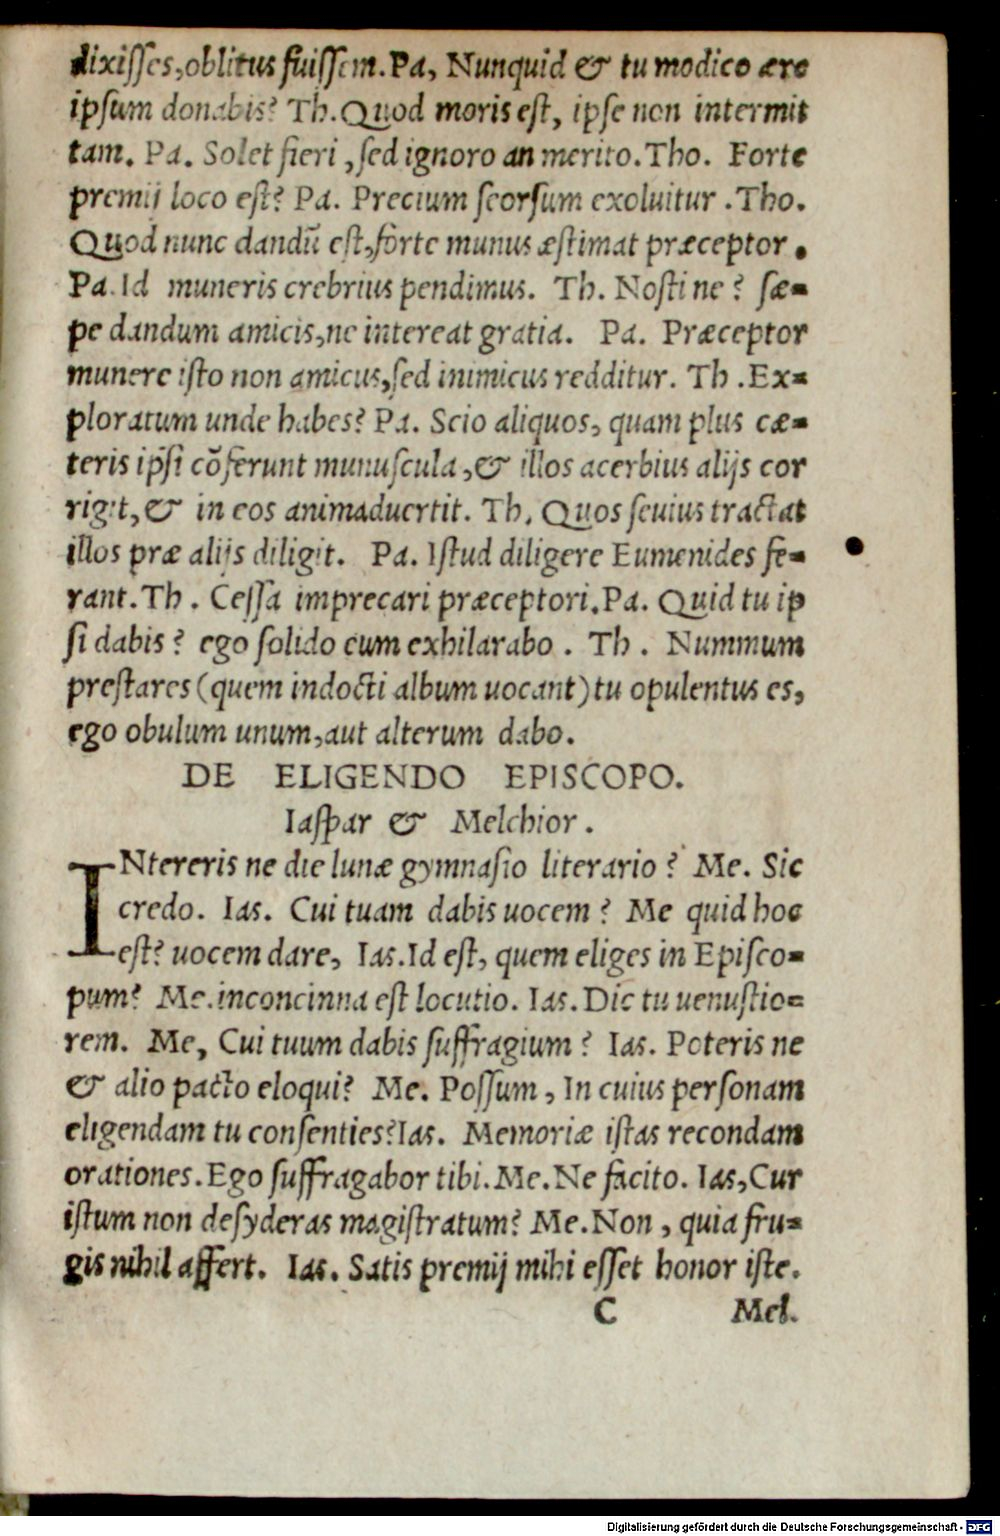 dixisses,oblitus fuissem.Pa, Nunquid & tu modico ære
ipsum donabis? Th.Quod moris est, ipse non intermit
tam. Pa. Solet fieri ,sed ignoro an merito.Tho. Forte
premij loco est? Pa. Precium seorsum exoluitur .Tho.
Quod nunc dandū est,forte munus æstimat præceptor .
Pa.Id muneris crebrius pendimus. Th. Nosti ne ? sæ=
pe dandum amicis,ne intereat gratia. Pa. Præceptor
munere isto non amicus,sed inimicus redditur. Th .Ex=
ploratum unde habes? Pa. Scio aliquos, quam plus cæ=
teris ipsi cōferunt munuscula ,& illos acerbius alijs cor
rigit,& in eos animaduertit. Th. Quos seuius tractat
illos præ alijs diligit. Pa. Istud diligere Eumenides fe=
rant.Th . Cessa imprecari præceptori.Pa. Quid tu ip
si dabis ? ego solido eum exhilarabo . Th . Nummum
prestares (quem indocti album uocant) tu opulentus es,
ego obulum unum,aut alterum dabo.
DE ELIGENDO EPISCOPO.
Iaspar & Melchior .
INtereris ne die lunæ gymnasio literario ? Me. Sic
credo. Ias. Cui tuam dabis uocem ? Me quid hoc
est? uocem dare, Ias.Id est, quem eliges in Episco=
pum? Me.inconcinna est locutio. Ias. Dic tu uenustio=
rem. Me, Cui tuum dabis suffragium ? Ias. Poteris ne
& alio pacto eloqui? Me. Possum , In cuius personam
eligendam tu consenties?Ias. Memoriæ istas recondam
orationes.Ego suffragabor tibi.Me.Ne facito. Ias,Cur
istum non desyderas magistratum? Me.Non , quia fru=
gis nihil affert. Ias. Satis premij mihi esset honor iste.
C Mel.
Digitalisierung gefördert durch die Deutsche Forschungsgemeinschaft - DFG